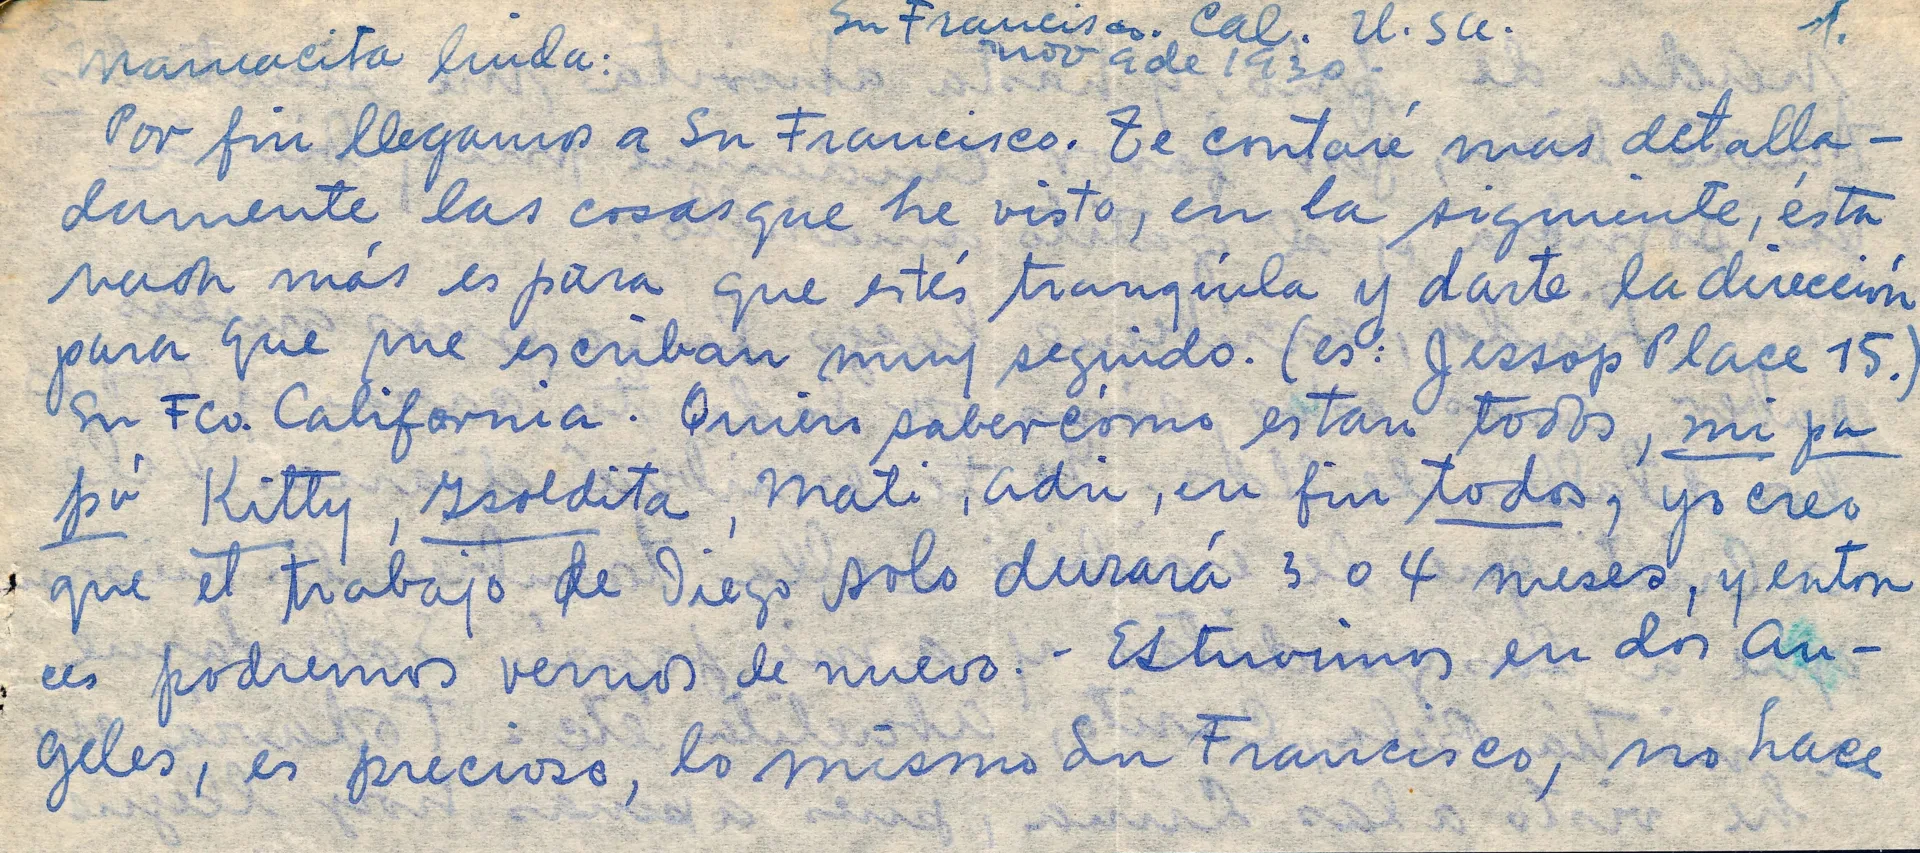 Sn Francisco. Cal. U.S.A. 1.
Nov 9 de 1930.-
Mamacita linda:
Por fin llegamos a Sn Francisco. Te contaré mas detalla-
damente las cosas que he visto, en la siguiente, ésta
nada más es para que estés tranquila y darte la dirección
para que me escriban muy seguido. (es: Jessop Place 15.)
Sn Fco. California. Quien saber cómo estan todos, mi pa
pá Kitty, Isoldita, Mati, Adri, en fin todos, yo creo
que el trabajo de Diego solo durará 3 o 4 meses, y enton
ces podremos vernos de nuevo.- Estuvimos en dos An-
geles, es precioso, lo mismo Sn Francisco, no hace